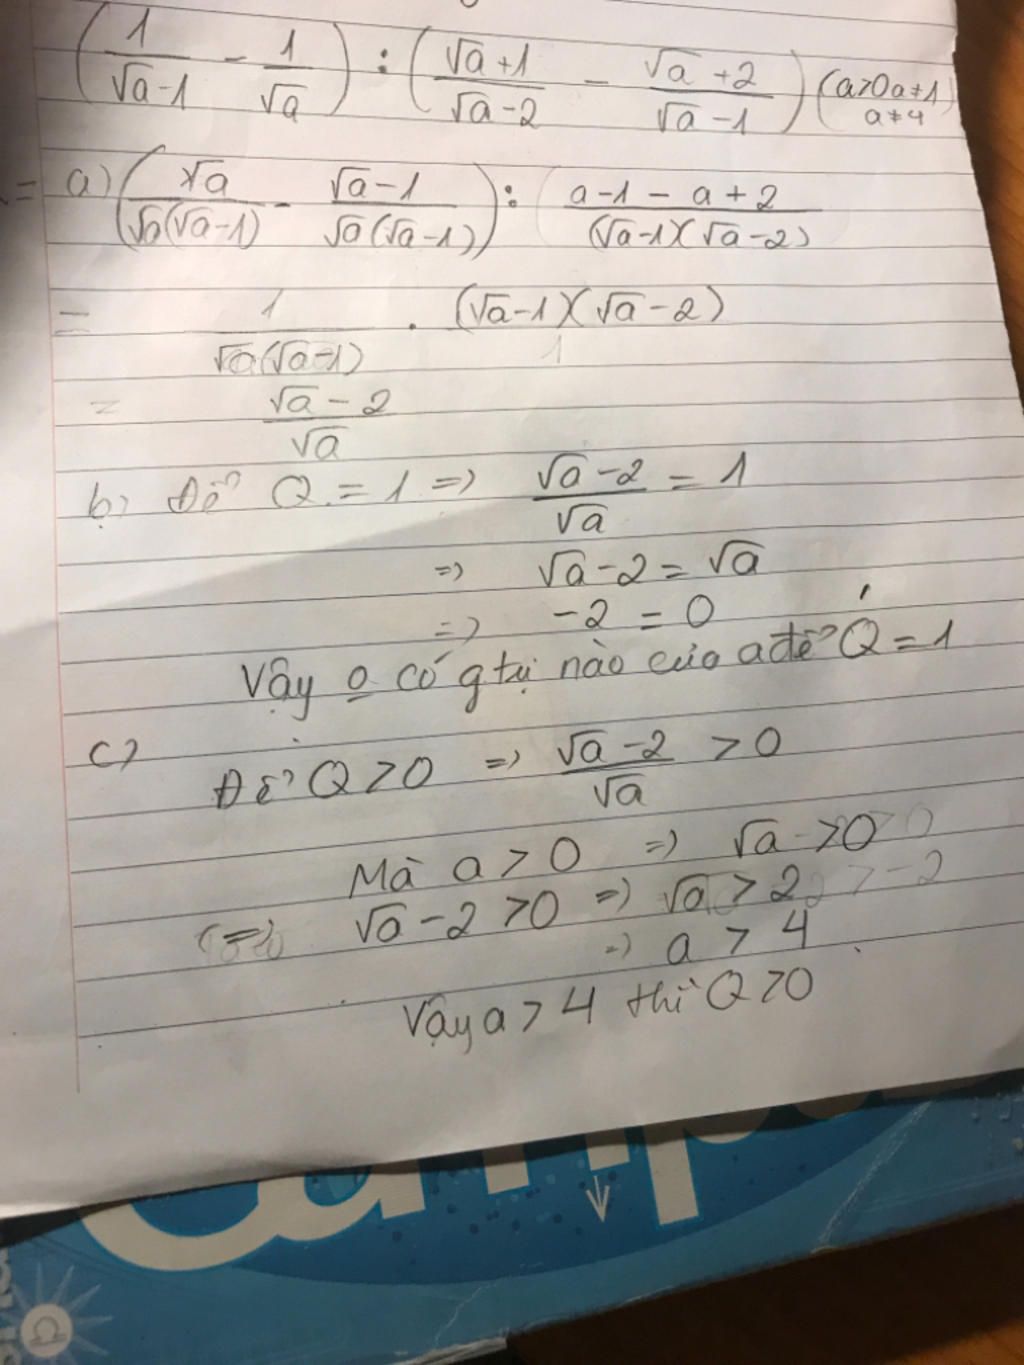 (1/(√a-1) - 1/√a) : ((√a+1)/(√a-2) - (√a+2)/(√a-1)) (a>0 a≠1
a≠4
= a) (√a/(√a(√a-1)) - (√a-1)/(√a(√a-1))) : (a-1-a+2)/((√a-1)(√a-2))
= 1/(√a(√a-1)) . (√a-1)(√a-2)/1
= (√a-2)/√a
b) Để Q = 1 => (√a-2)/√a = 1
=> √a-2 = √a
=> -2 = 0
Vậy o có gtrị nào của a để Q = 1
c)
Để Q > 0 => (√a-2)/√a > 0
Mà a > 0 => √a > 0
(=> √a-2 > 0 => √a > 2
=> a > 4
Vậy a > 4 thì Q > 0